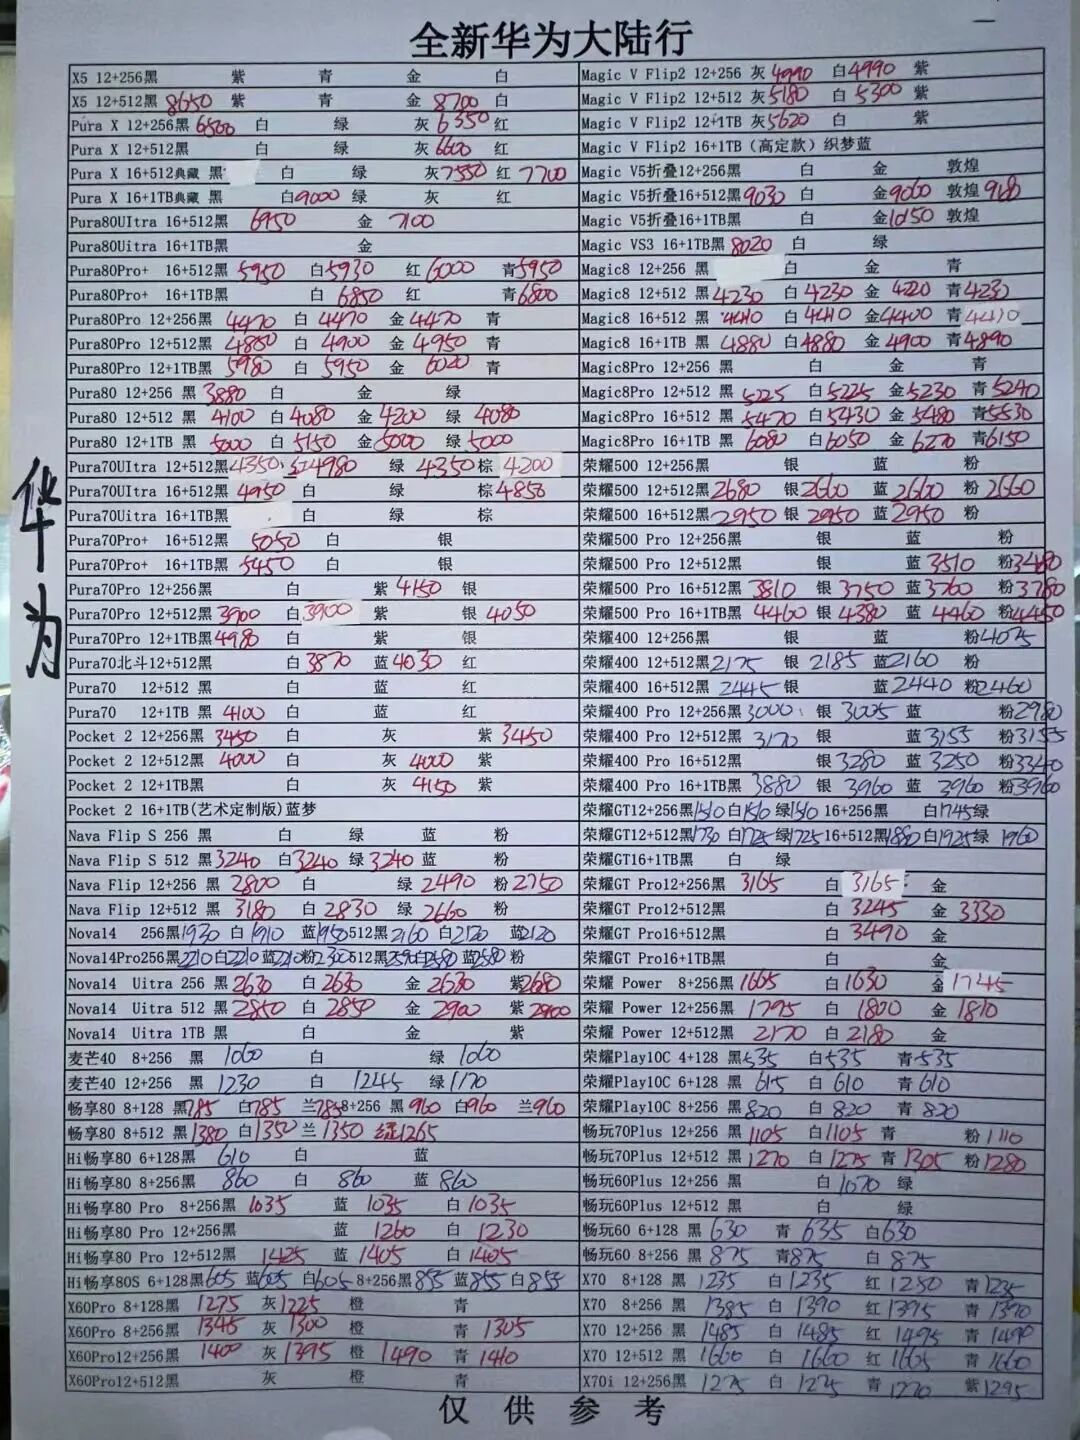 全新华为大陆行
华为
X5 12+256黑 紫 青 金 白
X5 12+512黑 8650 紫 青 金 8700 白
Pura X 12+256黑 6500 白 绿 灰 6350 红
Pura X 12+512黑 白 绿 灰 6600 红
Pura X 16+512典藏 黑 白 绿 灰7550 红 7700
Pura X 16+1TB典藏 黑 白9000 绿 灰 红
Pura80UItra 16+512黑 6950 金 7100
Pura80Uitra 16+1TB黑 金
Pura80Pro+ 16+512黑 5950 白5930 红 6000 青5950
Pura80Pro+ 16+1TB黑 白 6850 红 青6800
Pura80Pro 12+256黑 4470 白 4470 金 4470 青
Pura80Pro 12+512黑 4850 白 4900 金 4950 青
Pura80Pro 12+1TB黑 5980 白 5950 金 6020 青
Pura80 12+256 黑 3880 白 金 绿
Pura80 12+512 黑 4100 白 4080 金 4200 绿 4080
Pura80 12+1TB 黑 5000 白 5150 金 5000 绿 5000
Pura70UItra 12+512黑4350 红4980 绿 4350 棕 4200
Pura70UItra 16+512黑 4950 白 绿 棕 4850
Pura70Uitra 16+1TB黑 白 绿 棕
Pura70Pro+ 16+512黑 5050 白 银
Pura70Pro+ 16+1TB黑 5450 白 银
Pura70Pro 12+256黑 白 紫 4150 银
Pura70Pro 12+512黑 3900 白3900 紫 银 4050
Pura70Pro 12+1TB黑 4980 白 紫 银
Pura70北斗12+512黑 白 3870 蓝 4030 红
Pura70 12+512 黑 白 蓝 红
Pura70 12+1TB 黑 4100 白 蓝 红
Pocket 2 12+256黑 3450 白 灰 紫 3450
Pocket 2 12+512黑 4000 白 灰 4000 紫
Pocket 2 12+1TB黑 白 灰 4150 紫
Pocket 2 16+1TB(艺术定制版)蓝梦
Nava Flip S 256 黑 白 绿 蓝 粉
Nava Flip S 512 黑3240 白3240 绿 3240 蓝 粉
Nava Flip 12+256 黑 2800 白 绿 2490 粉 2750
Nava Flip 12+512 黑 3180 白 2830 绿 2660 粉
Nova14 256黑1930 白 1910 蓝1950 512黑2160 白2120 蓝2120
Nova14Pro256黑2210 白2210 蓝2210 粉2300 512黑2590 白2580 蓝2580 粉
Nova14 Uitra 256 黑 2630 白 2630 金 2630 紫2680
Nova14 Uitra 512 黑 2850 白 2850 金 2900 紫 2900
Nova14 Uitra 1TB 黑 白 金 紫
麦芒40 8+256 黑 1060 白 绿 1060
麦芒40 12+256 黑 1230 白 1245 绿 1170
畅享80 8+128 黑785 白785 兰785 8+256 黑 960 白960 兰960
畅享80 8+512 黑 1380 白1350 兰 1350 绿1265
Hi畅享80 6+128黑 610 白 蓝
Hi畅享80 8+256黑 860 白 860 蓝 860
Hi畅享80 Pro 8+256黑 1035 蓝 1035 白 1035
Hi畅享80 Pro 12+256黑 蓝 1260 白 1230
Hi畅享80 Pro 12+512黑 1425 蓝 1405 白 1405
Hi畅享80S 6+128黑605 蓝605 白605 8+256黑855 蓝855 白855
X60Pro 8+128黑 1275 灰1225 橙 青
X60Pro 8+256黑 1345 灰 1300 橙 青 1305
X60Pro12+256黑 1400 灰 1395 橙 1490 青 1410
X60Pro12+512黑 灰 橙 青
Magic V Flip2 12+256 灰 4990 白4990 紫
Magic V Flip2 12+512 灰5180 白 5300 紫
Magic V Flip2 12+1TB 灰5620 白 紫
Magic V Flip2 16+1TB（高定款）织梦蓝
Magic V5折叠12+256黑 白 金 敦煌
Magic V5折叠16+512黑9030 白 金9060 敦煌
Magic V5折叠16+1TB黑 白 金 敦煌
Magic VS3 16+1TB黑8020 白 绿
Magic8 12+256 黑 白 金 青
Magic8 12+512 黑4230 白 4230 金 4220 青4230
Magic8 16+512 黑 4410 白 4410 金4400 青4410
Magic8 16+1TB 黑 4880 白4880 金 4900 青4890
Magic8Pro 12+256 黑 白 金 青
Magic8Pro 12+512 黑 5225 白5225 金5230 青5240
Magic8Pro 16+512 黑 5470 白5430 金 5480 青5530
Magic8Pro 16+1TB 黑 6080 白6050 金 6270 青6150
荣耀500 12+256黑 银 蓝 粉
荣耀500 12+512黑2680 银2660 蓝 2660 粉 2660
荣耀500 16+512黑2950 银 2950 蓝2950 粉
荣耀500 Pro 12+256黑 银 蓝 粉
荣耀500 Pro 12+512黑 银 蓝 3510 粉3480
荣耀500 Pro 16+512黑 3810 银 3750 蓝 3760 粉3780
荣耀500 Pro 16+1TB黑 4460 银 4380 蓝 4460 粉4450
荣耀400 12+256黑 银 蓝 粉4075
荣耀400 12+512黑2175 银 2185 蓝2160 粉
荣耀400 16+512黑 2445 银 蓝2440 粉2460
荣耀400 Pro 12+256黑3000 银 3005 蓝 粉2980
荣耀400 Pro 12+512黑 3170 银 蓝3155 粉3155
荣耀400 Pro 16+512黑 银3280 蓝 3250 粉3340
荣耀400 Pro 16+1TB黑 3880 银 3960 蓝 3960 粉3960
荣耀GT12+256黑1510 白1510 绿1510 16+256黑 白1745 绿
荣耀GT12+512黑1730 白1725 绿1725 16+512黑1880 白1925 绿 1960
荣耀GT16+1TB黑 白 绿
荣耀GT Pro12+256黑 3165 白 3165 金
荣耀GT Pro12+512黑 白 3245 金 3330
荣耀GT Pro16+512黑 白 3490 金
荣耀GT Pro16+1TB黑 白 金
荣耀 Power 8+256黑 1665 白1630 金1745
荣耀 Power 12+256黑 1795 白 1800 金 1810
荣耀 Power 12+512黑 2170 白 2180 金
荣耀Play10C 4+128 黑535 白535 青535
荣耀Play10C 6+128 黑 615 白 610 青 610
荣耀Play10C 8+256 黑820 白 820 青 820
畅玩70Plus 12+256 黑1105 白1105 青 粉1110
畅玩70Plus 12+512 黑1270 白 1275 青 1305 粉1280
畅玩60Plus 12+256 黑 白 1070 绿
畅玩60Plus 12+512 黑 白 绿
畅玩60 6+128 黑 630 青 635 白630
畅玩60 8+256 黑 875 青875 白 875
X70 8+128 黑 1235 白 1235 红 1250 青 1235
X70 8+256 黑 1385 白 1390 红 1395 青 1390
X70 12+256 黑 1485 白 1485 红 1495 青 1490
X70 12+512 黑 1660 白 1660 红 1665 青 1660
X70i 12+256黑 1275 白 1275 青 1270 紫1295
仅供参考